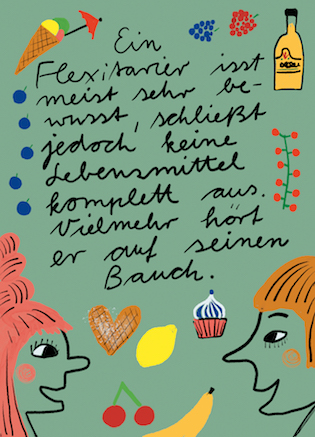 Ein
Flexitarier isst
meist sehr be-
wusst, schließt
jedoch keine
Lebensmittel
komplett aus.
Vielmehr hört
er auf seinen
Bauch.